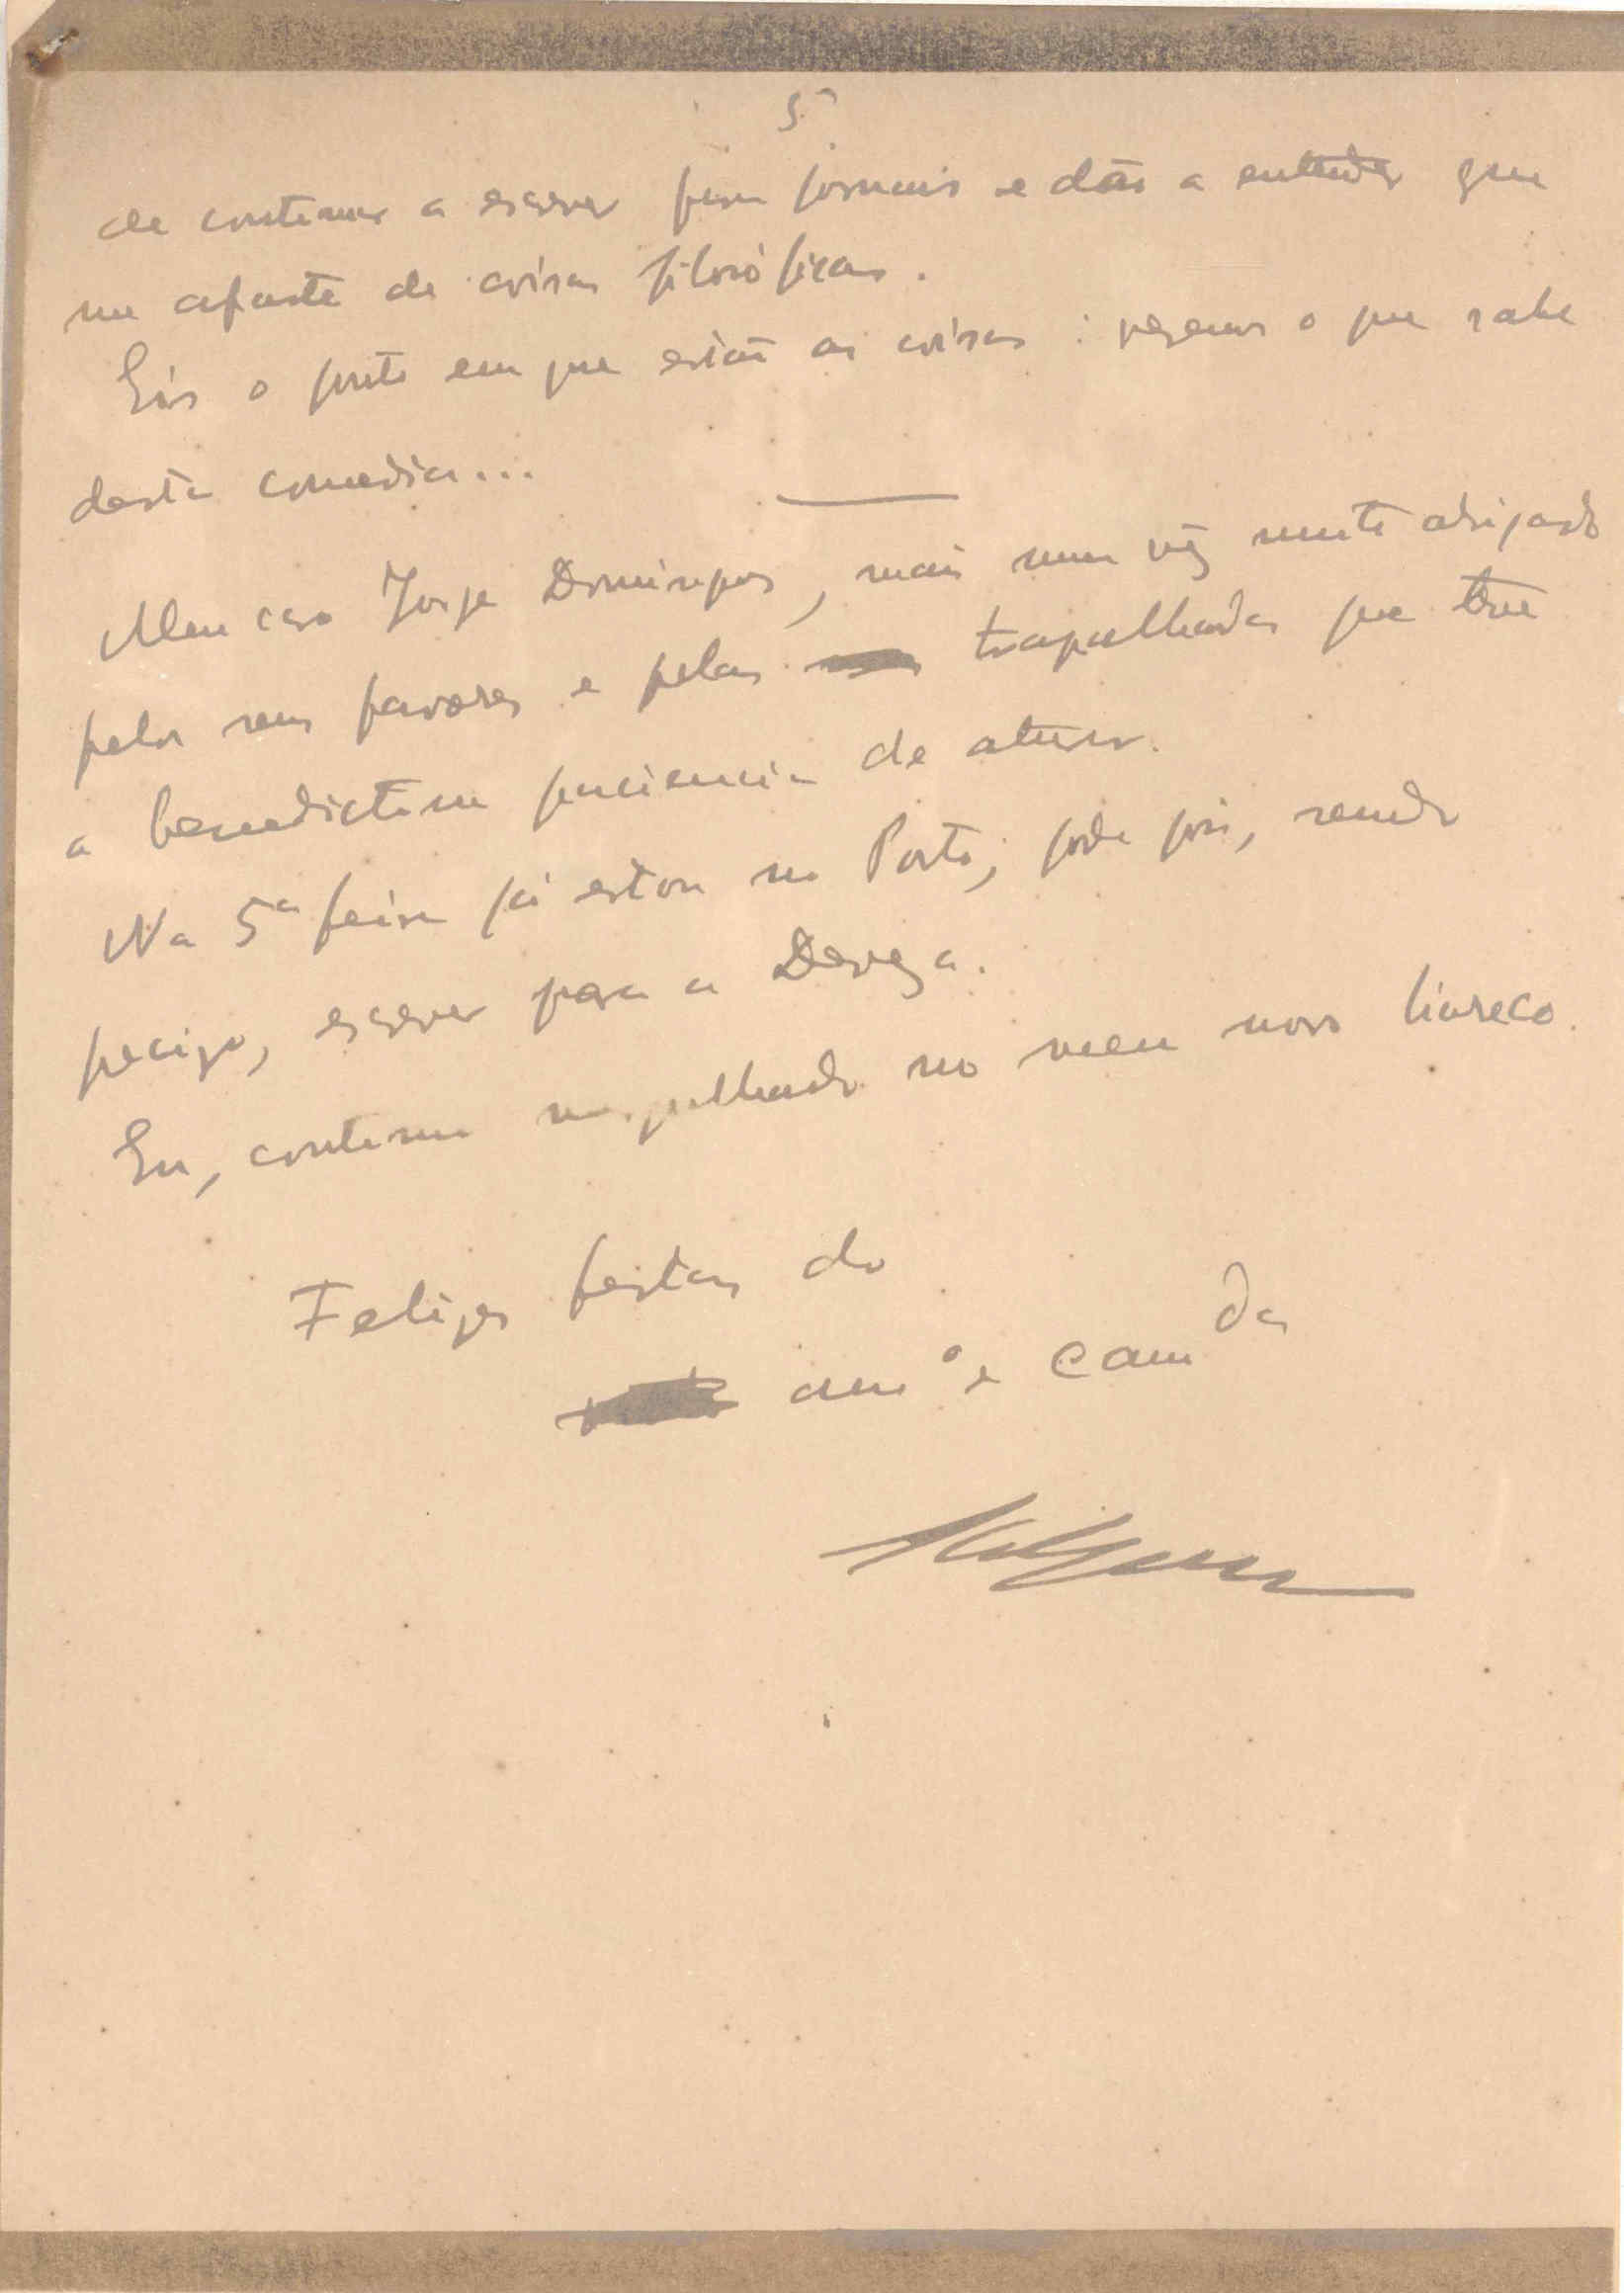 5
de continuar a escrever para jornais e dão a entender que
me afaste de coisas filosóficas.
Eis o ponto em que estão as coisas: vejamos o que sabe
desta comedia...
Meu caro Jorge Domingues, mais uma vez muito obrigado
pelos seus favores e pelas trapalhadas que teve
a benedictina paciencia de aturar.
Na 5ª feira já estou no Porto; pode pois, sendo
preciso, escrever para a Deveza.
Eu, continuo mergulhado no meu novo livreco.
Felizes festas do
am.º e cam.da